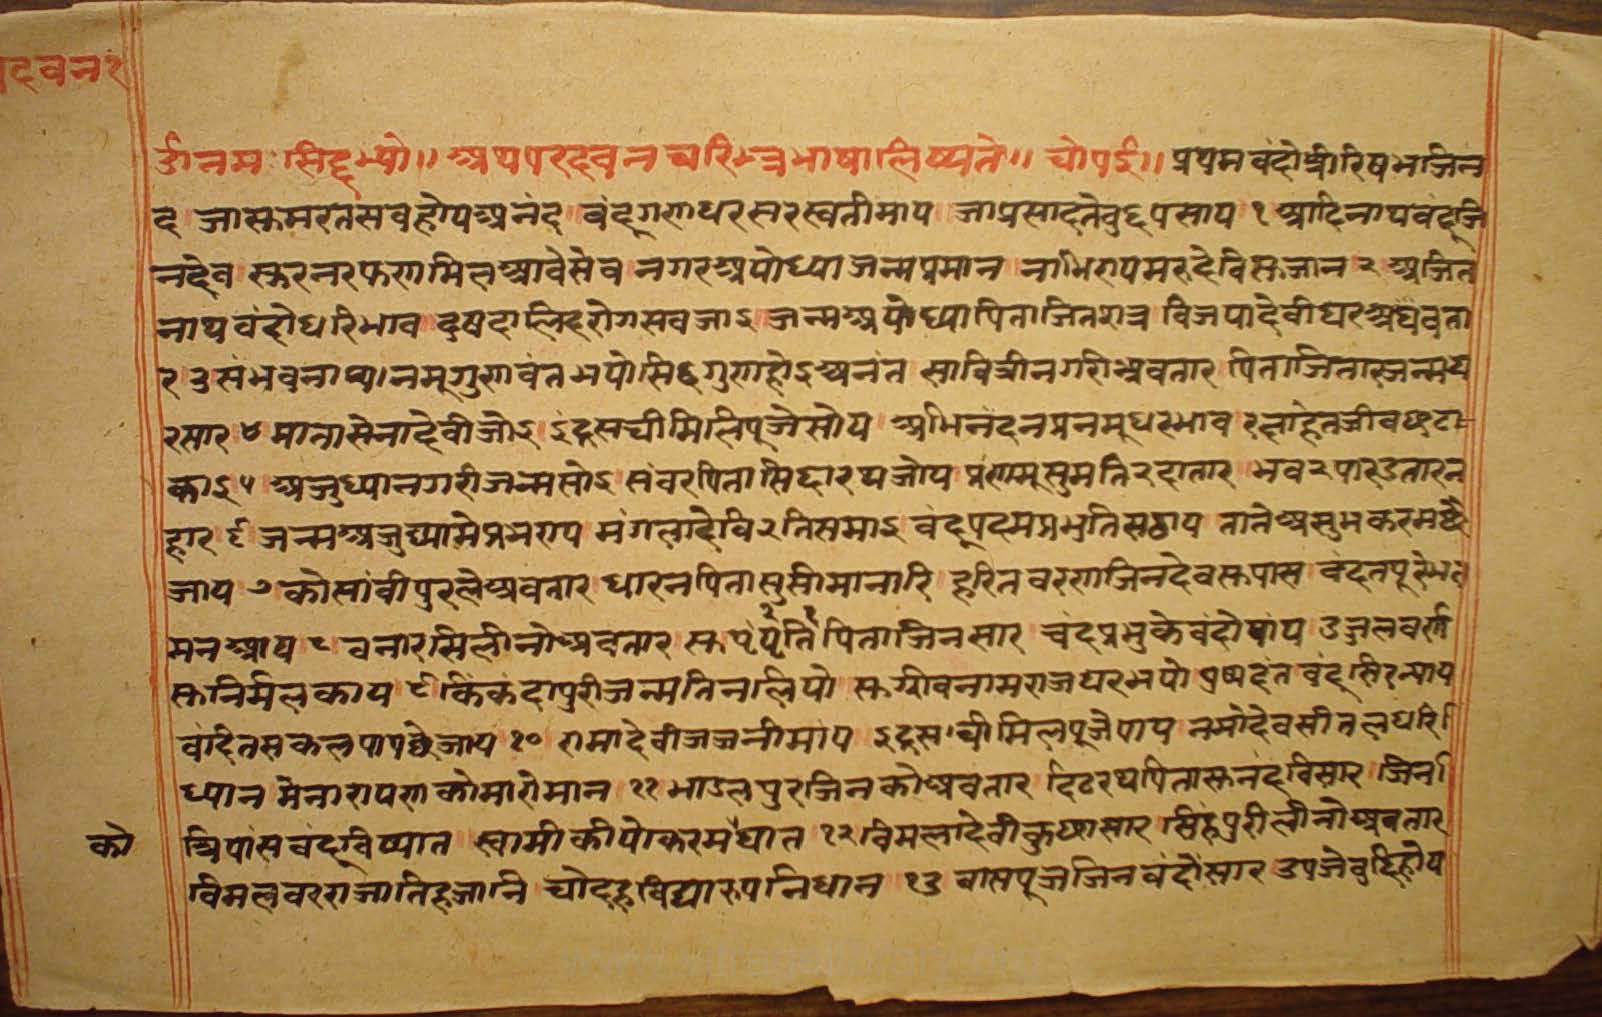 दवन १
ॐ नमः सिद्धेभ्यो॥ अथ परदवन चरित्र भाषा लिष्यते॥ चोपई॥ प्रथम वंदो श्रीरिषभजिनं
द जासुमरतसवहोयअनंद वंदूगणधरसरस्वतीमाय जाप्रसादतेवुद्दपसाय १ आदिनाथवंदूजि
नदेव सुरनरफणमिलआवेसेव नगरअयोध्याजन्मप्रमान नाभिरायमरुदेविसुजान २ अजित
नाथवंदोधरिभाव दुषदालिद्दरोगसवजाइ जन्मअयोध्यापिताजितशत्र विजयादेवीघरअवता
र ३ संभवनाथानमूगुणवंत भयोसिद्धगुणहोइअनंत सावित्रीनगरीअवतार पिताजितारजन्मघ
रसार ४ मातासेनादेवीजोइ इंद्रसचीमिलिपूजेसोय अभिनंदनप्रनमूधरभाव
काइ ५ अजुध्यानगरीजन्मसोइ संवरपितासिद्धारथजोय प्रणमूसुमतिरदातार भव२पारउतारन
हार ६ जन्मअजुध्यामेप्रभराय मंगलादेविरतिसमाइ वंदूपदमप्रभुतिसठाय तातेअसुभकरम
जाय ७ कोसांवीपुरलेअवतार धारनपितासुसीमानारि हरितवरणजिनदेवसुपास वंदतपूरे
मनआय ८ वनारसिलीनोअवतार पितीजिनसार चंदप्रभुकेवंदोपांय उजलवर्ण
सुनिर्मलकाय ९ किंकंदापुरीजन्मतिनलियो सुग्रीवनामराजघरभयो पुष्पदंत वंदू
वांदितसकलपापछेजाय १० रामादेवीजजनीमाय इंद्रसचीमिलपूजेपाय नमोदेवसीतलधरि
ध्यान मेनारायणकोमारोमान ११ भाडलपुरजिनकोअवतार दिढरथपितासुनंदविसार जिन
को श्रियांसवंदूविष्यात स्वामीकीयोकरमघात १२ विमलादेवीकुष्यसार सिंहपुरीलीनोअवतार
विमलवरराजातिहजानि चोदहविद्यारुपनिधान १३ वासपूजजिनवंदोसार उपजेवुद्दिहोय